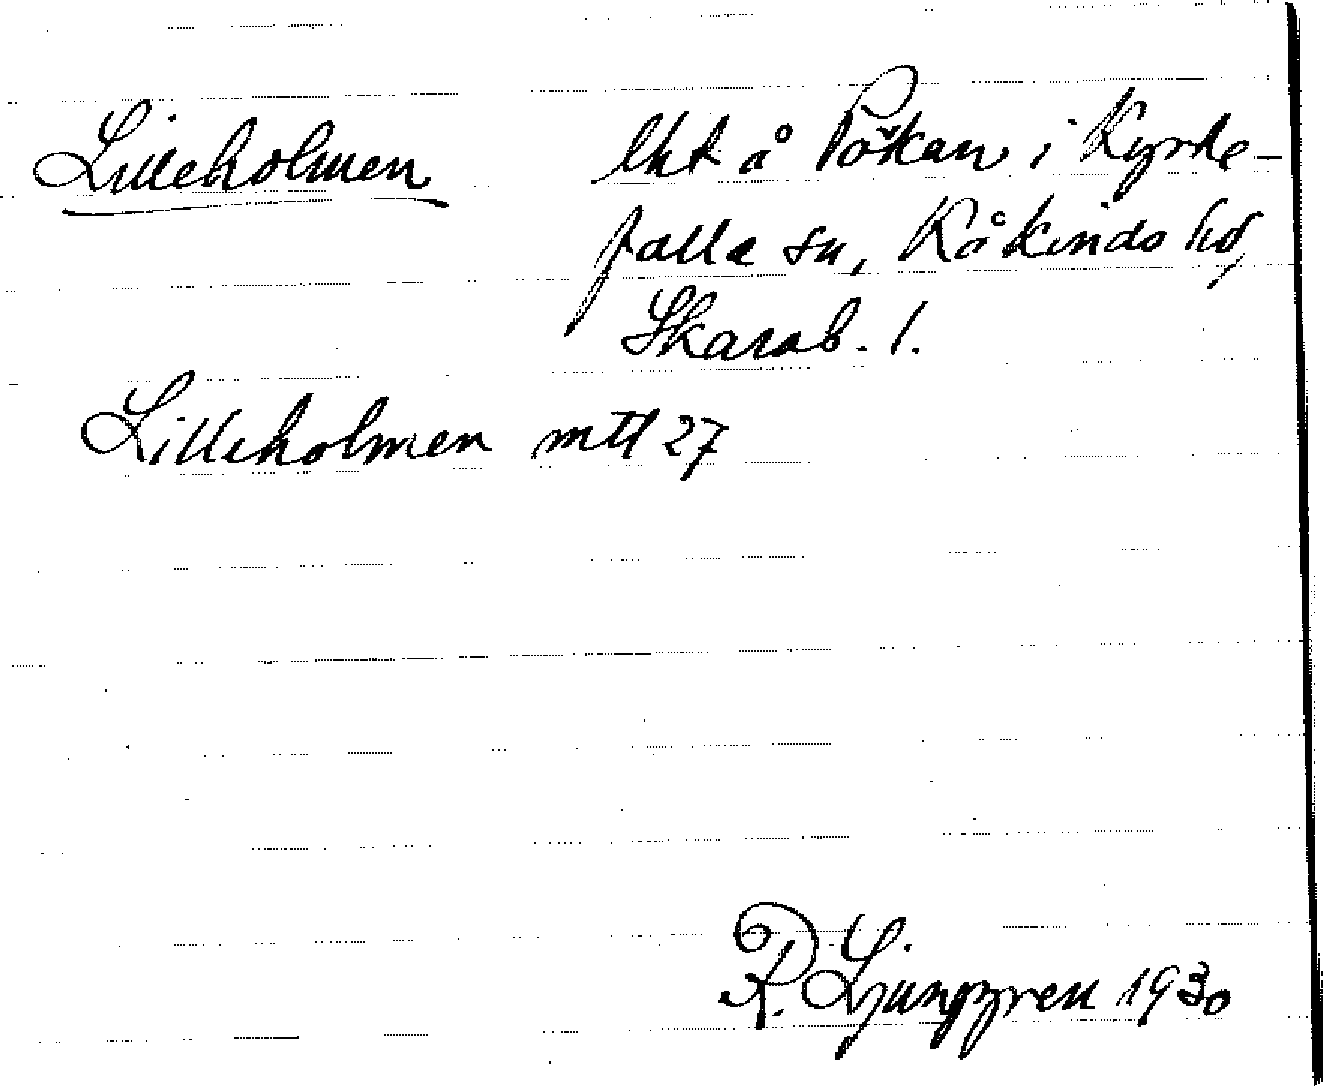 Lilleholmen lht å Pökan i Kyrke-
falla sn, Kåkinds hd,
Skarab. l.
Lilleholmen mtl 27
R. Ljunggren 1930